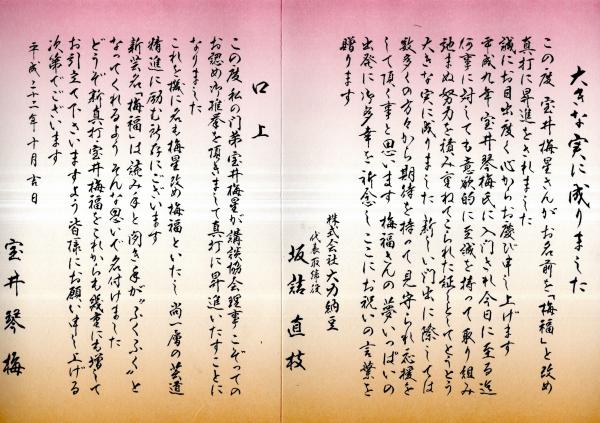 大きな実に成りました
この度 宝井梅星さんがお名前を「梅福」と改め
真打に昇進をされました
誠にお目出度く心からお慶び申し上げます
平成九年 宝井琴梅氏に入門され今日に至る迄
何事に対しても意欲的に至誠を持って取り組み
弛まぬ努力を積み重ねてこられた証しとしてとうとう
大きな実に成りました 新しい門出に際しては
数多くの方々から期待を持って見守られ応援を
して頂く事と思います 梅福さんの夢いっぱいの
出発に御多幸を祈念しここにお祝いの言葉を
贈ります
株式会社大力納豆
代表取締役
坂詰直枝
口上
この度 私の門弟宝井梅星が講談協会理事こぞっての
お認め御推挙を頂きまして真打に昇進いたすことに
なりました
これを機に名も梅星改め梅福といたし 尚一層の芸道
精進に励む所存にございます
新芸名「梅福」は 読み手と聞き手が“ふくふく”と
なってくれるよう そんな思いで名付けました
どうぞ新真打 宝井梅福をこれからも幾重にも増して
お引立て下さいますよう 皆様にお願い申し上げる
次第でございます
平成二十二年十月吉日
宝井琴梅